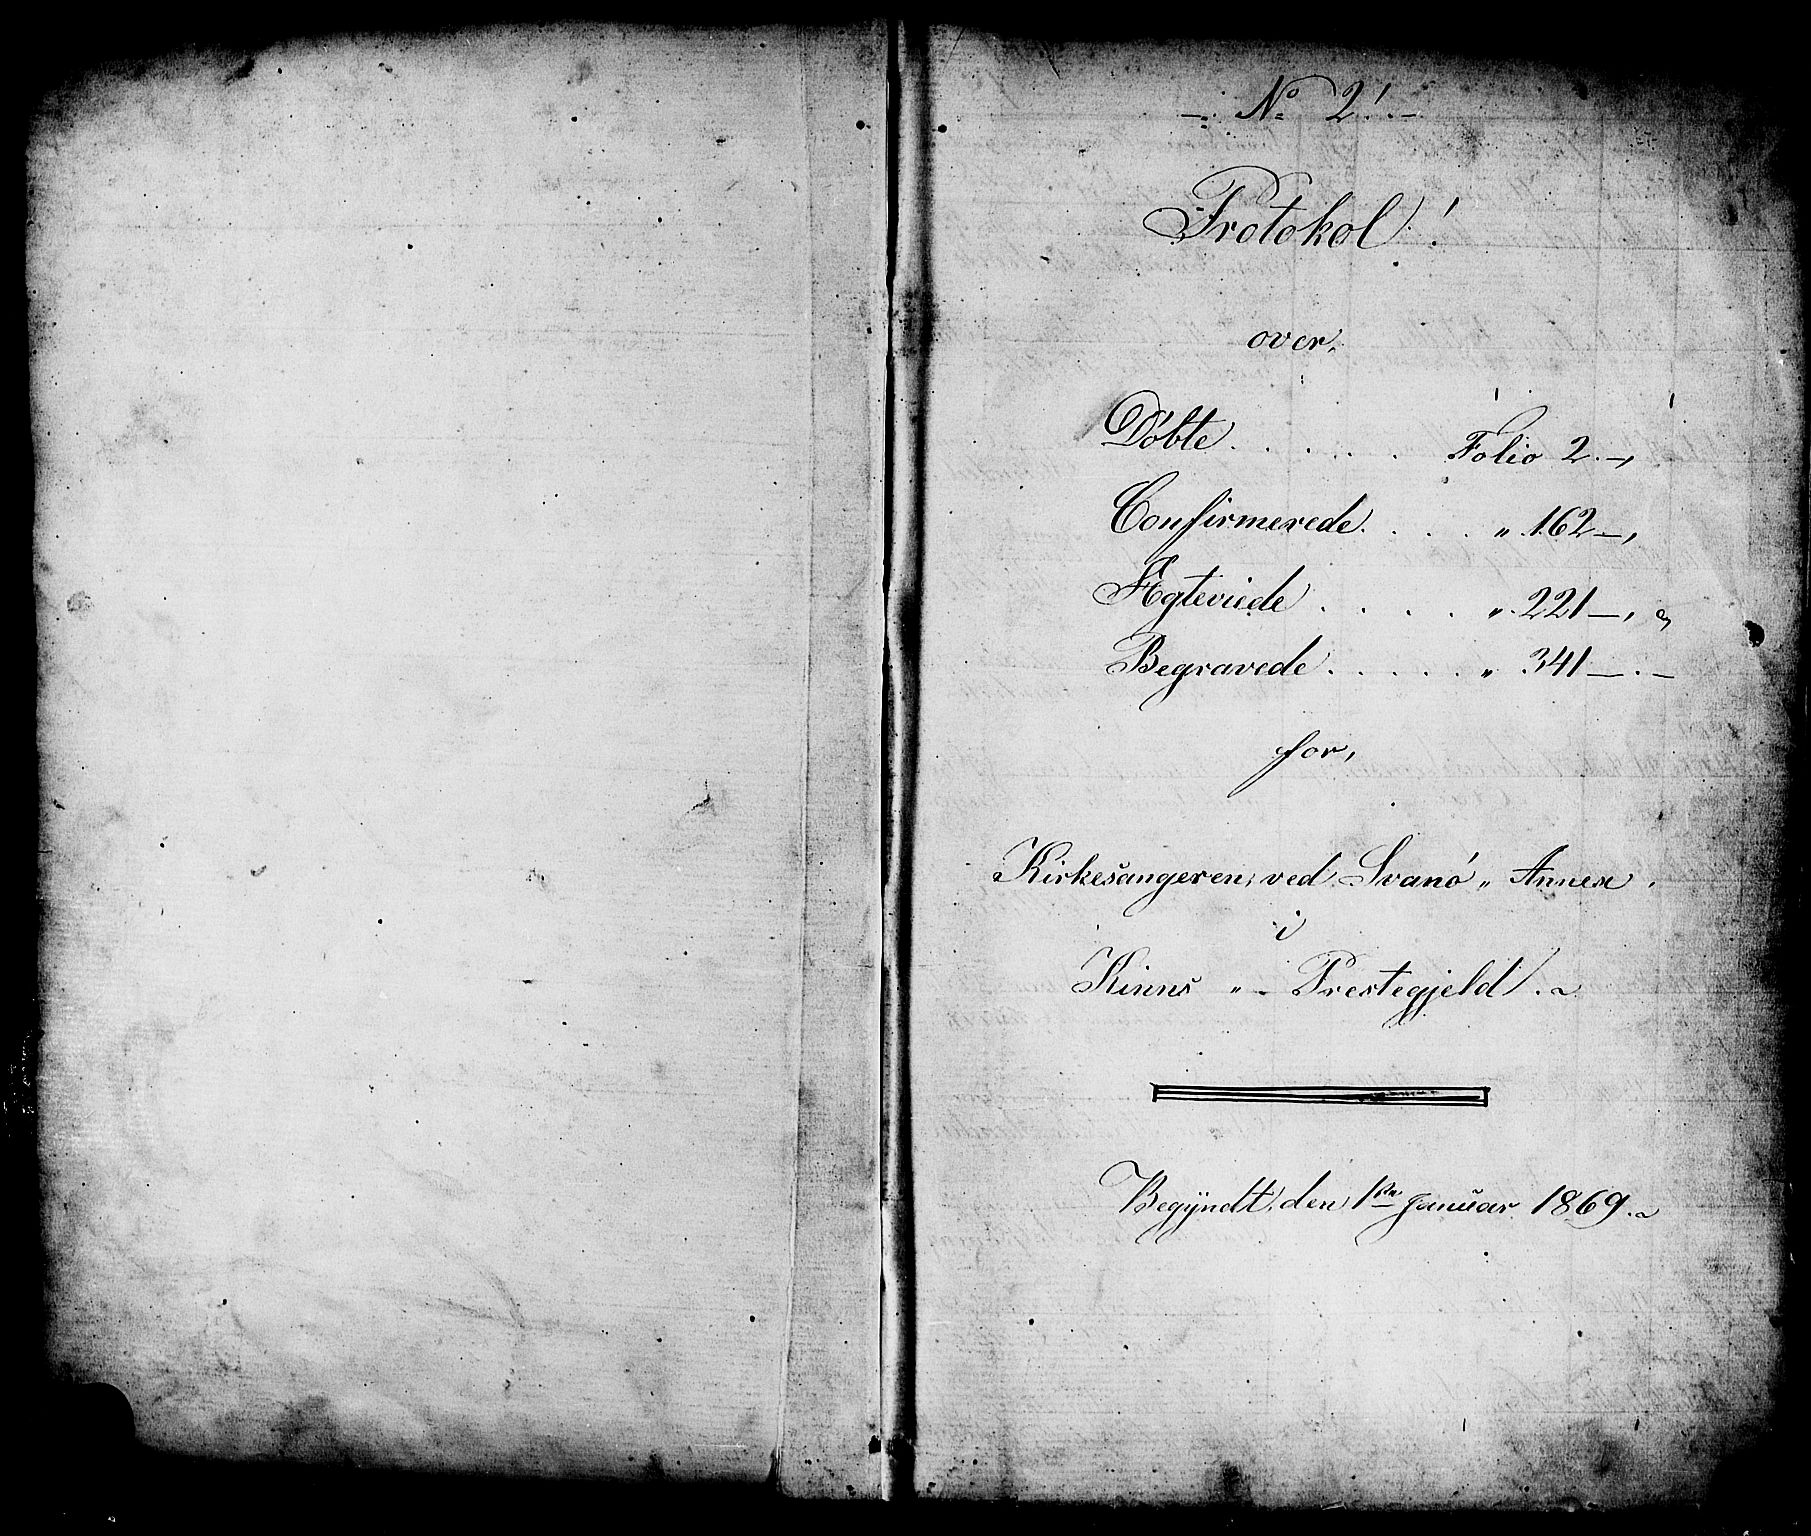 -. No 2!.-
Protokol!
over,
Døbte. . . . . . Folio 2.-,
Confirmerede. . . . . „ 162-,
Ægteviede . . . . „ 221-, &
Begravede. . . . . . „ 341-.-
for,
Kirkesangeren, ved Svanö „ Annex.
i
Kinns „ - Prestegjeld.
Begÿndt, den 1ste Januar 1869.